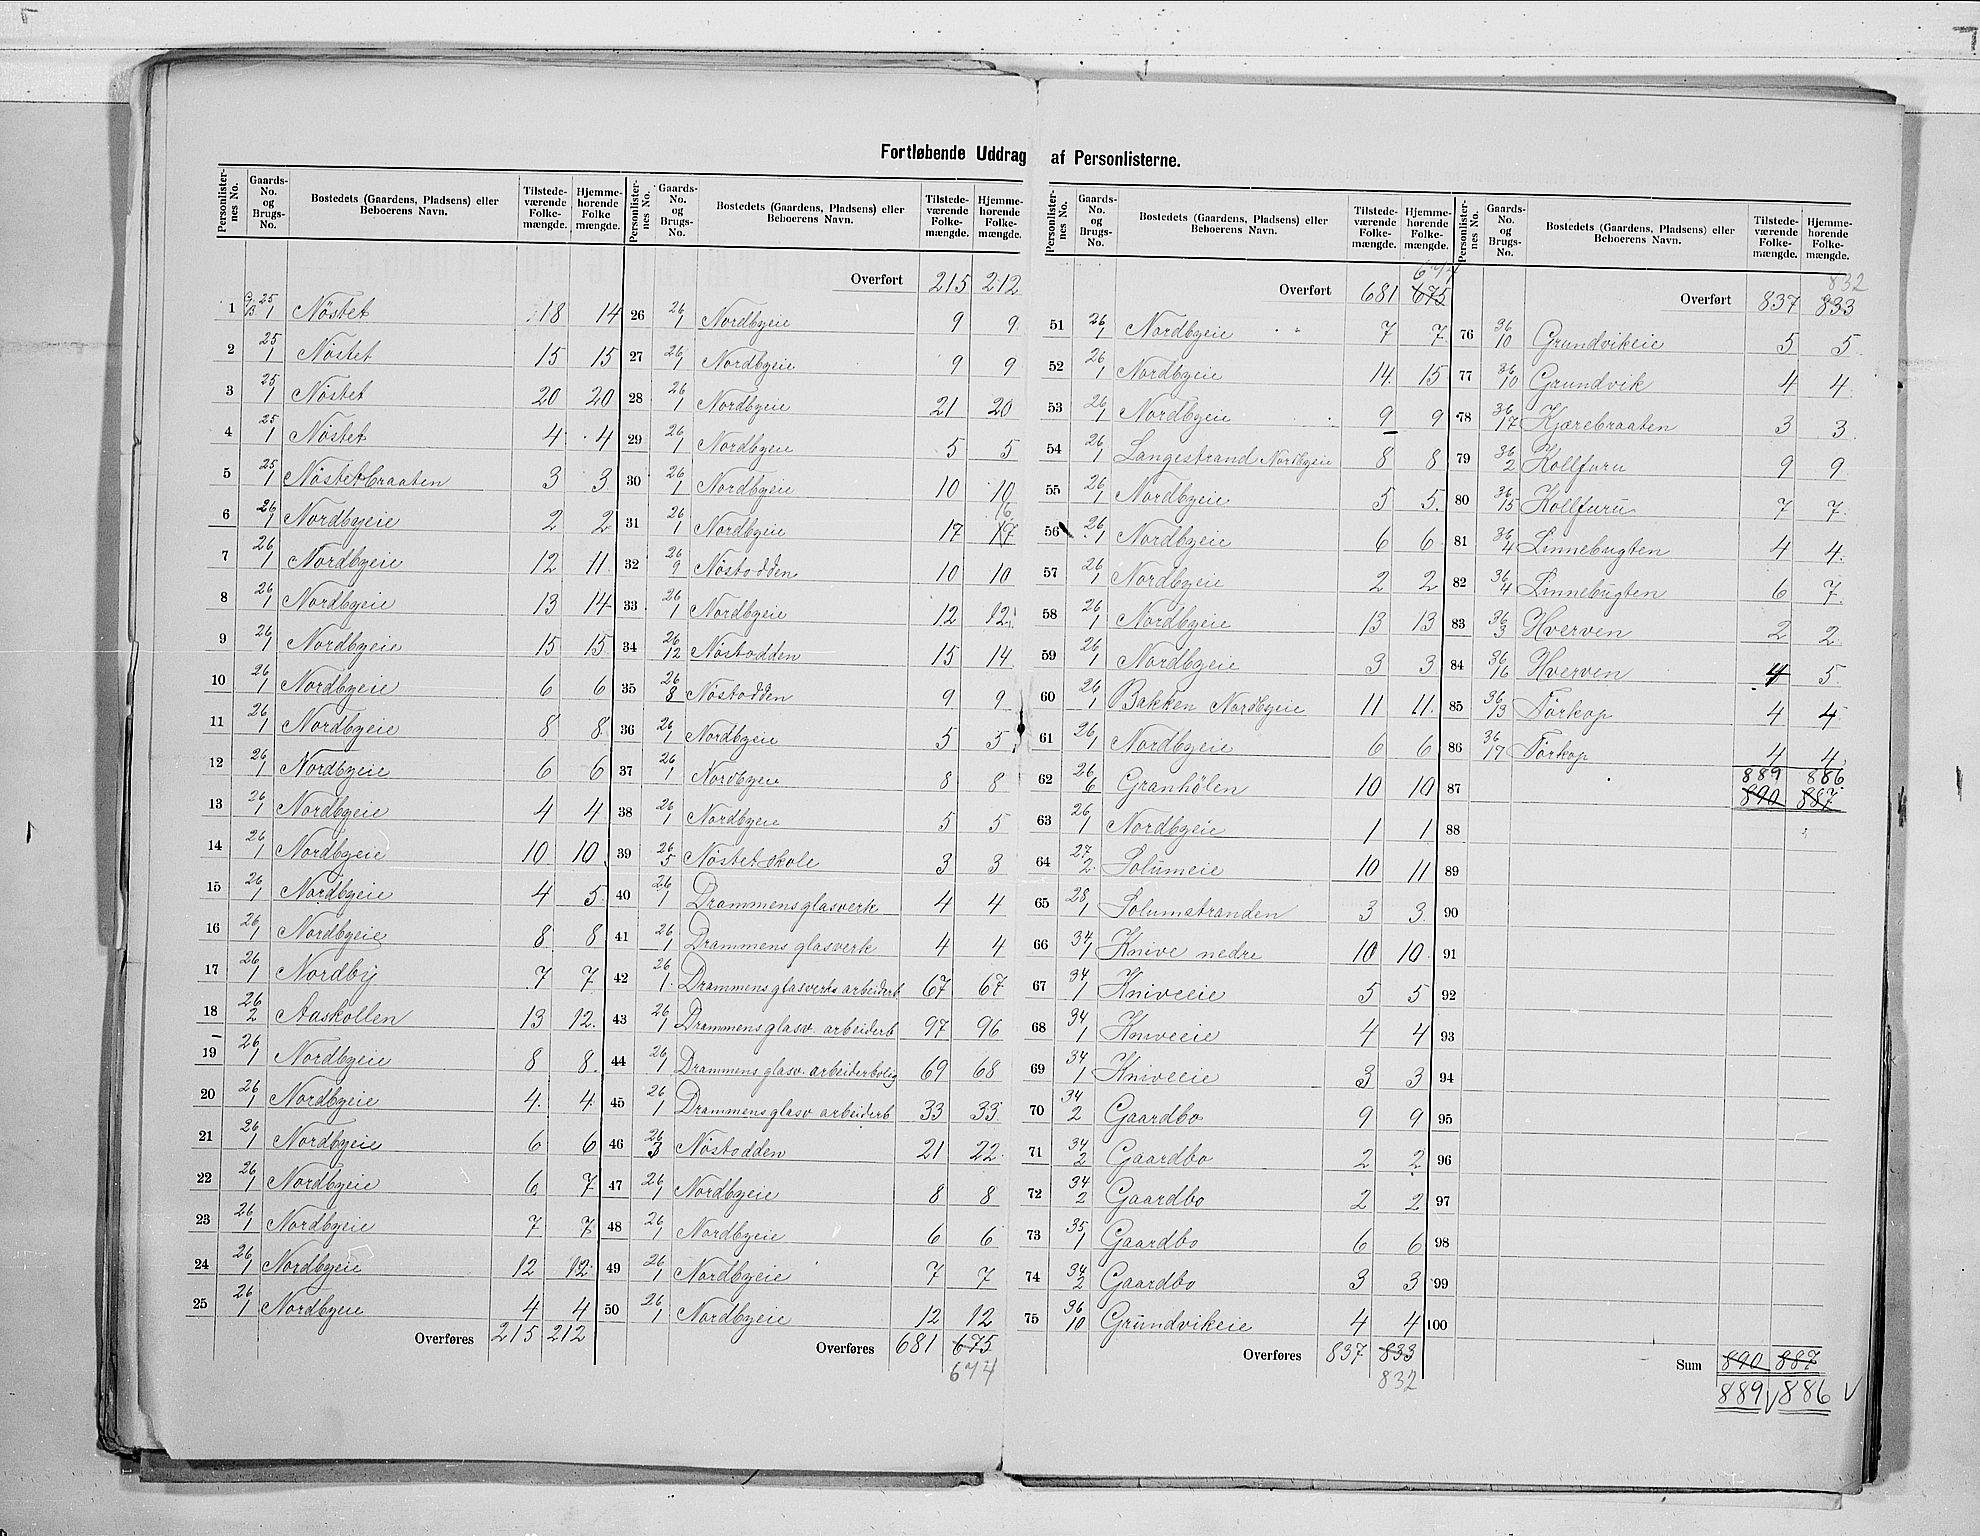 Fortløbende Uddrag af Personlisterne.
Personlister-nes No. Gaards-No. og Brugs-No. Bostedets (Gaardens, Pladsens) eller Beboerens Navn. Tilstede-værende Folke-mængde. Hjemme-hørende Folke mængde.
1 G/B 25/1 Nöstet 18 14
2 25/1 Nöstet 15 15
3 25/1 Nöstet 20 20
4 25/1 Nöstet 4 4
5 25/1 Nöstetbraaten 3 3
6 26/1 Nordbyeie 2 2
7 26/1 Nordbyeie 12 11
8 26/1 Nordbyeie 13 14
9 26/1 Nordbyeie 15 15
10 26/1 Nordbyeie 6 6
11 26/1 Nordbyeie 8 8
12 26/1 Nordbyeie 6 6
13 26/1 Nordbyeie 4 4
14 26/1 Nordbyeie 10 10
15 26/1 Nordbyeie 4 5
16 26/1 Nordbyeie 8 8
17 26/1 Nordby 7 7
18 26/2 Aaskollen 13 12
19 26/1 Nordbyeie 8 8
20 26/1 Nordbyeie 4 4
21 26/1 Nordbyeie 6 6
22 26/1 Nordbyeie 6 7
23 26/1 Nordbyeie 7 7
24 26/1 Nordbyeie 12 12
25 26/1 Nordbyeie 4 4
Overføres 215 212
Personlister-nes No. Gaards-No. og Brugs-No. Bostedets (Gaardens, Pladsens) eller Beboerens Navn. Tilstede-værende Folke-mængde. Hjemme-hørende Folke-mængde.
Overført 215 212
26 26/1 Nordbyeie 9 9
27 26/1 Nordbyeie 9 9
28 26/1 Nordbyeie 21 20
29 26/1 Nordbyeie 5 5
30 26/1 Nordbyeie 10 10
31 26/1 Nordbyeie 17 17 16
32 26/9 Nöstodden 10 10
33 26/1 Nordbyeie 12 12
34 26/12 Nöstodden 15 14
35 26/8 Nöstodden 9 9
36 26/1 Nordbyeie 5 5
37 26/1 Nordbyeie 8 8
38 26/1 Nordbyeie 5 5
39 26/5 Nöstet skole 3 3
40 26/1 Drammens glasverk 4 4
41 26/1 Drammens glasverk 4 4
42 26/1 Drammens glasverks arbeiderb 67 67
43 26/1 Drammens glasv. arbeiderb 97 96
44 26/1 Drammens glasv. arbeiderbolig 69 68
45 26/1 Drammens glasv arbeiderb 33 33
46 26/3 Nöstodden 21 22
47 26/1 Nordbyeie 8 8
48 26/1 Nordbyeie 6 6
49 26/1 Nordbyeie 7 7
50 26/1 Nordbyeie 12 12
Overføres 681 675
674
Personlister-nes No. Gaards-No. og Brugs-No. Bostedets (Gaardens, Pladsens) eller Beboerens Navn. Tilstede-værende Folke-mængde. Hjemme-hørende Folke-mængde.
674
Overført 681 675
51 26/1 Nordbyeie 7 7
52 26/1 Nordbyeie 14 15
53 26/1 Nordbyeie 9 9
54 26/1 Langestrand Nordbyeie 8 8
55 26/1 Nordbyeie 5 5
56 26/1 Nordbyeie 6 6
57 26/1 Nordbyeie 2 2
58 26/1 Nordbyeie 13 13
59 26/1 Nordbyeie 3 3
60 26/1 Bakken Nordbyeie 11 11
61 26/1 Nordbyeie 6 6
62 26/6 Granhölen 10 10
63 26/1 Nordbyeie 1 1
64 27/2 Solumeie 10 11
65 28/1 Solumstranden 3 3
66 34/1 Knive nedre 10 10
67 34/1 Kniveeie 5 5
68 34/1 Kniveeie 4 4
69 34/1 Kniveeie 3 3
70 34/2 Gaardbo 9 9
71 34/2 Gaardbo 2 2
72 34/2 Gaardbo 2 2
73 35/1 Gaardbo 6 6
74 34/2 Gaardbo 3 3
75 36/10 Grundvikeie 4 4
Overføres 837 833
832
Personlister-nes No. Gaards-No. og Brugs-No. Bostedets (Gaardens, Pladsens) eller Beboerens Navn. Tilstede-værende Folke-mængde. Hjemme-hørende Folke-mængde.
832
Overført 837 833
76 36/10 Grundvikeie 5 5
77 36/10 Grundvik 4 4
78 36/17 Kjærebraaten 3 3
79 36/2 Kollfuru 9 9
80 36/15 Kollfuru 7 7
81 36/4 Linnebugten 4 4
82 36/4 Linnebugten 6 7
83 36/3 Hverven 2 2
84 36/16 Hverven 4 5
85 36/13 Törkop 4 4
86 36/17 Törkop 4 4
889 886
87 890 887
88
89
90
91
92
93
94
95
96
97
98
99
100
Sum 890 887
889 886